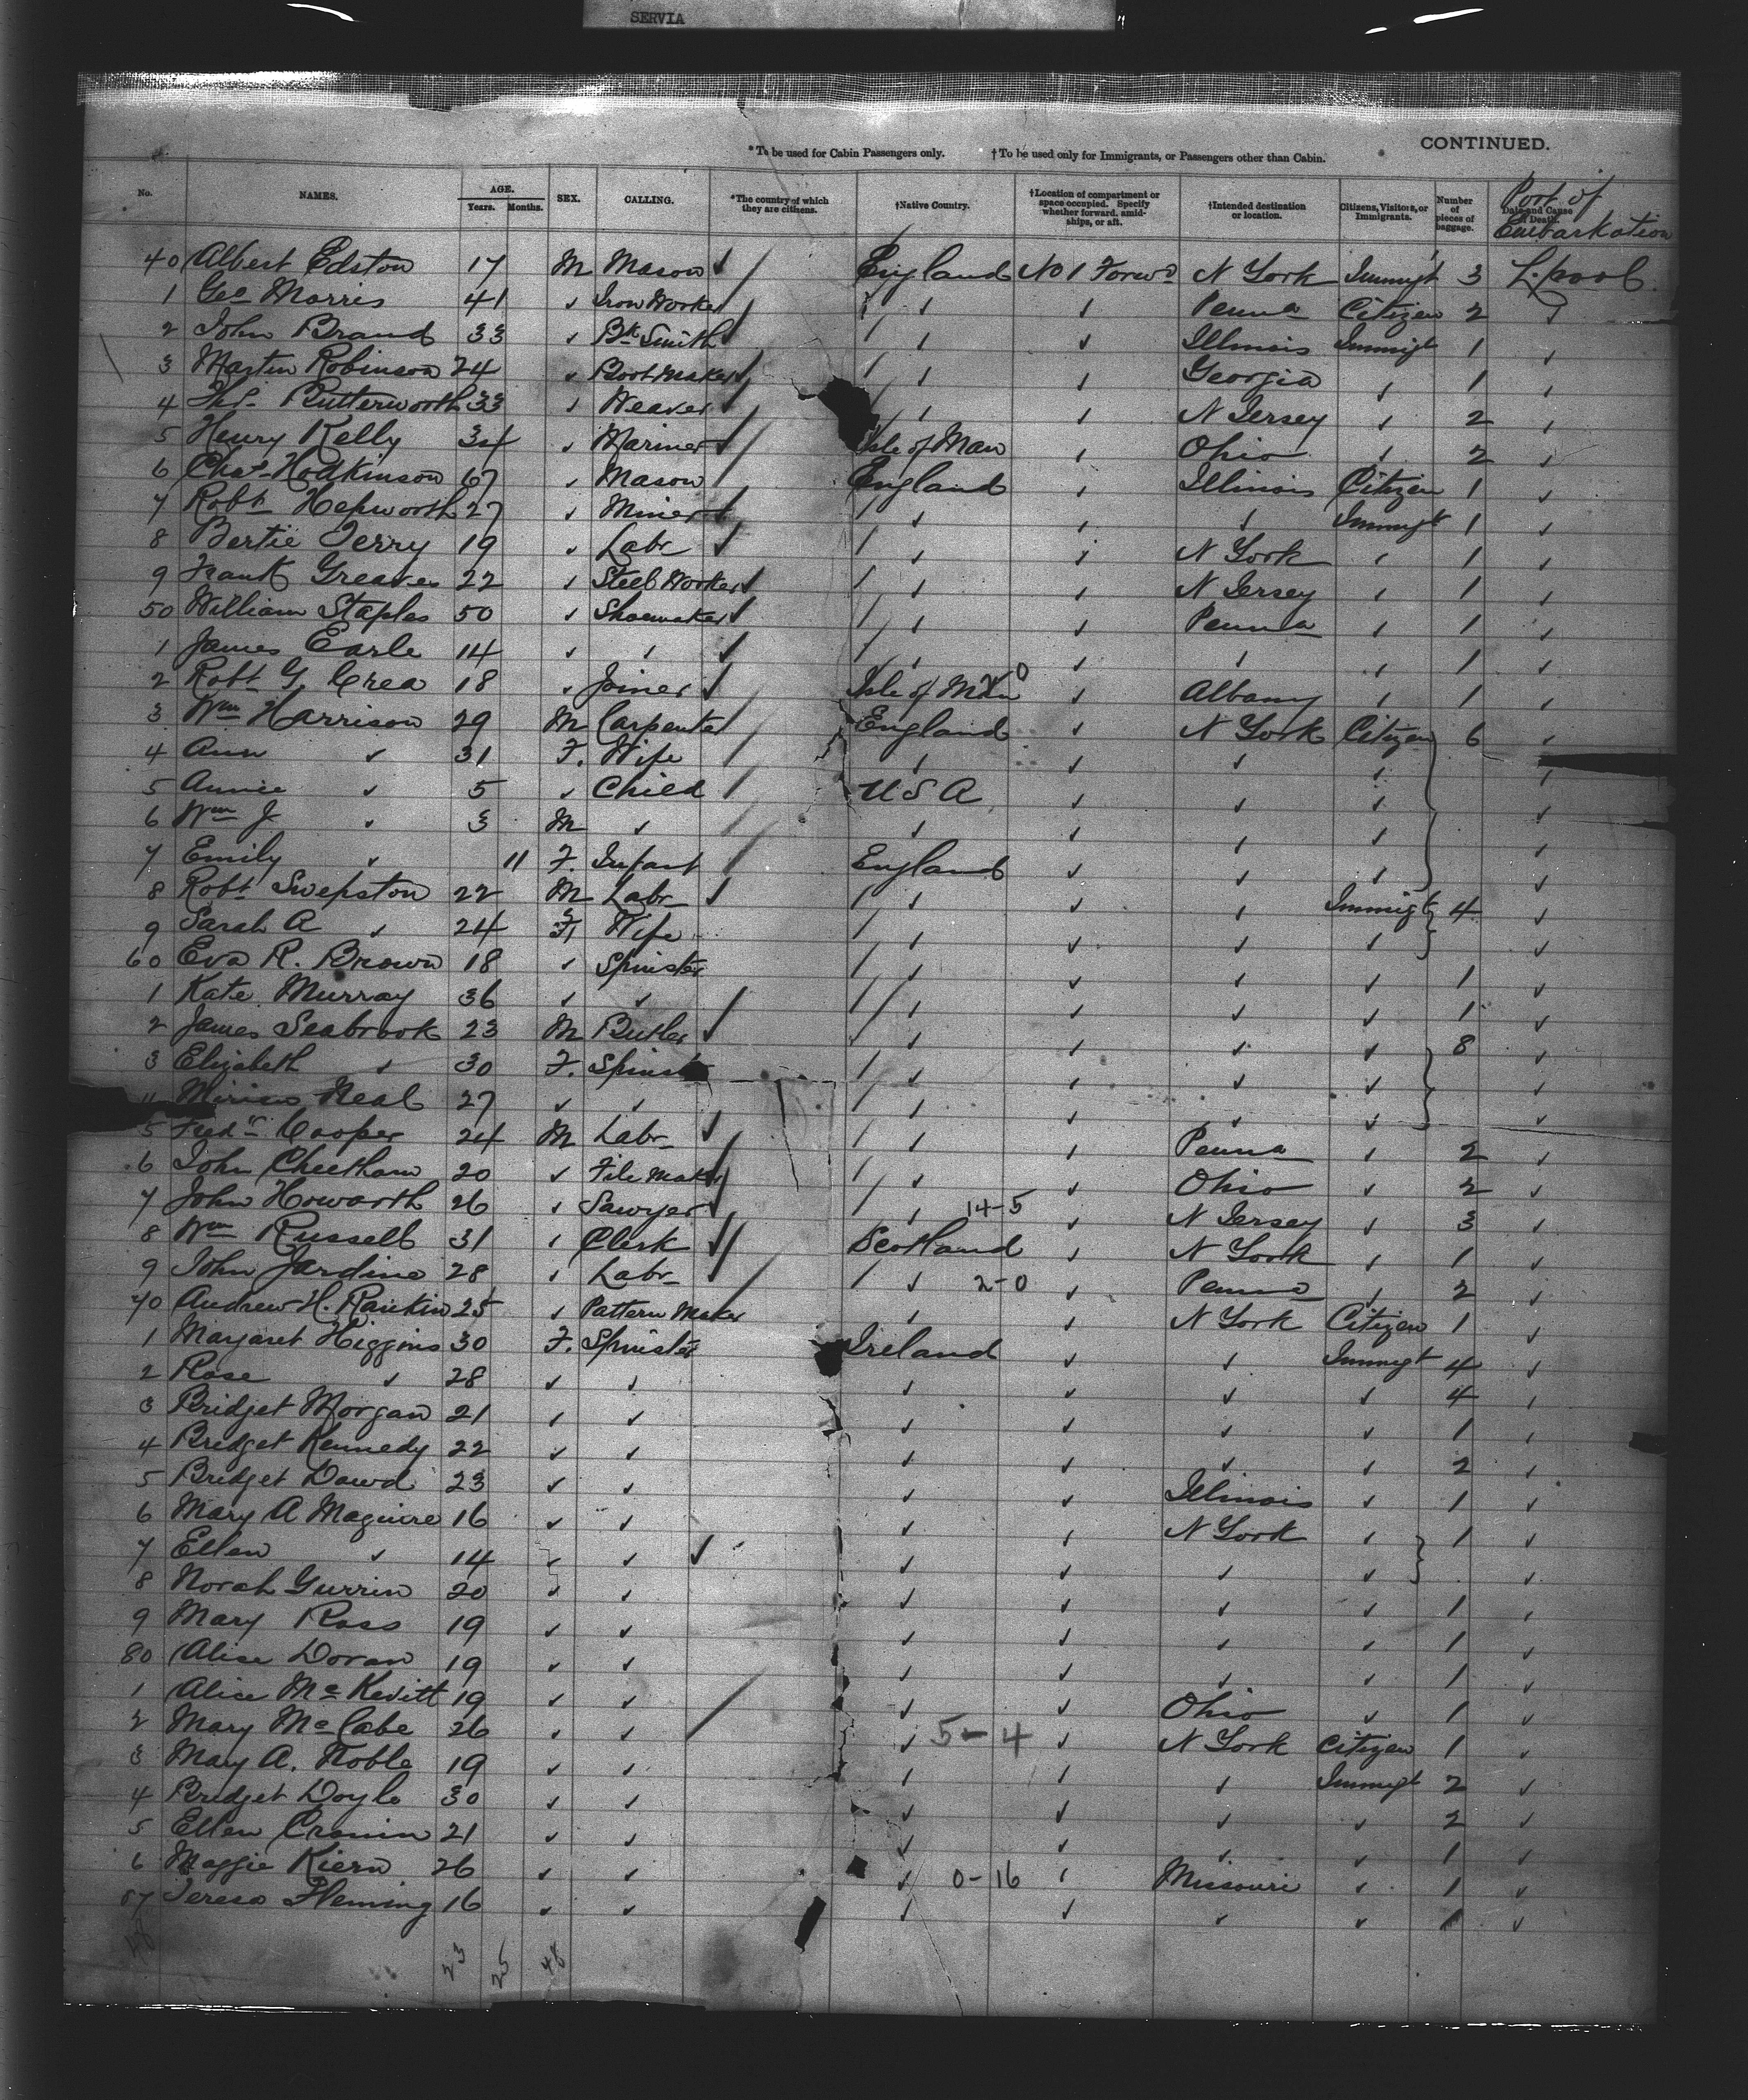 SERVIA
CONTINUED.
*To be used for Cabin Passengers only. †To be used only for Immigrants, or Passengers other than Cabin.
No. NAMES. AGE. Years. Months. SEX. CALLING. *The country of which they are citizens. †Native Country. †Location of compartment or space occupied. Specify whether forward, amidships, or aft. †Intended destination or location. Citizens, Visitors, or Immigrants. Number of pieces of baggage. Date and Cause of Death. Port of Embarkation
40 Albert Edston 17 M Mason ✓ England No 1 Forwd N York Immigt 3 L.pool.
1 Geo Morris 41 ✓ Iron Worker ✓ ✓ Penna Citizen 2 ✓
2 John Brand 33 ✓ Bk Smith ✓ ✓ Illinois Immigt 1 ✓
3 Martin Robinson 24 ✓ Boot Maker ✓ ✓ Georgia ✓ 1 ✓
4 Butterworth 33 ✓ Weaver ✓ ✓ N Jersey ✓ 2 ✓
5 Henry Kelly 34 ✓ Mariner Isle of Man ✓ Ohio ✓ 2 ✓
6 Chas Hodkinson 67 ✓ Mason England ✓ Illinois Citizen 1 ✓
7 Robt Hepworth 27 ✓ Miner ✓ ✓ ✓ Immigt 1 ✓
8 Bertie Terry 19 ✓ Labr ✓ ✓ N York ✓ 1 ✓
9 Frank Greaves 22 ✓ Steel Worker ✓ ✓ N Jersey ✓ 1 ✓
50 William Staples 50 ✓ Shoemaker ✓ ✓ Penna ✓ 1 ✓
1 James Earle 14 ✓ ✓ ✓ ✓ ✓ ✓ 1 ✓
2 Robt G. Crea 18 ✓ Joiner Isle of Man ✓ Albany ✓ 1 ✓
3 Wm Harrison 29 M Carpenter England ✓ N York Citizen 6 ✓
4 Ann ✓ 31 F. Wife ✓ ✓ ✓ ✓ ✓
5 Annie ✓ 5 ✓ Child U S A ✓ ✓ ✓ ✓
6 Wm J ✓ 3 M ✓ ✓ ✓ ✓ ✓ ✓
7 Emily ✓ 11 F. Infant England ✓ ✓ ✓ ✓
8 Robt Swepston 22 M Labr ✓ ✓ ✓ Immigt 4 ✓
9 Sarah A ✓ 24 F Wife ✓ ✓ ✓ ✓ ✓
60 Eva R. Brown 18 ✓ Spinster ✓ ✓ ✓ ✓ 1 ✓
1 Kate Murray 36 ✓ ✓ ✓ ✓ ✓ ✓ 1 ✓
2 James Seabrook 23 M Butler ✓ ✓ ✓ ✓ 8 ✓
3 Elizabeth ✓ 30 F. Spinst ✓ ✓ ✓ ✓ ✓
Neal 27 ✓ ✓ ✓ ✓ ✓ ✓ ✓
5 Fredk Cooper 24 M Labr ✓ ✓ Penna ✓ 2 ✓
6 John Cheetham 20 ✓ File Maker ✓ ✓ Ohio ✓ 2 ✓
7 John Howarth 26 ✓ Sawyer ✓ 14-5 ✓ N Jersey ✓ 3 ✓
8 Wm Russell 31 ✓ Clerk Scotland ✓ N York ✓ 1 ✓
9 John Jardine 28 ✓ Labr ✓ 2-0 ✓ Penna ✓ 2 ✓
70 Andrew H. Rankin 25 ✓ Pattern Maker ✓ ✓ N York Citizen 1 ✓
1 Margaret Higgins 30 F. Spinster Ireland ✓ ✓ Immigt 4 ✓
2 Rose ✓ 28 ✓ ✓ ✓ ✓ ✓ ✓ 4 ✓
3 Bridget Morgan 21 ✓ ✓ ✓ ✓ ✓ ✓ 1 ✓
4 Bridget Kennedy 22 ✓ ✓ ✓ ✓ ✓ ✓ 2 ✓
5 Bridget Dowd 23 ✓ ✓ ✓ ✓ Illinois ✓ 1 ✓
6 Mary A Maguire 16 ✓ ✓ ✓ ✓ N York ✓ 1 ✓
7 Ellen ✓ 14 ✓ ✓ ✓ ✓ ✓ ✓ ✓
8 Norah Gurrin 20 ✓ ✓ ✓ ✓ ✓ ✓ 1 ✓
9 Mary Ross 19 ✓ ✓ ✓ ✓ ✓ ✓ 1 ✓
80 Alice Doran 19 ✓ ✓ ✓ ✓ ✓ ✓ 1 ✓
1 Alice McKevitt 19 ✓ ✓ ✓ ✓ Ohio ✓ 1 ✓
2 Mary McCabe 26 ✓ ✓ ✓ 5-4 ✓ N York Citizen 1 ✓
3 Mary A. Noble 19 ✓ ✓ ✓ ✓ ✓ Immigt 2 ✓
4 Bridget Doyle 30 ✓ ✓ ✓ ✓ ✓ ✓ 2 ✓
5 Ellen Cronin 21 ✓ ✓ ✓ ✓ ✓ ✓ 1 ✓
6 Maggie Kiern 26 ✓ ✓ ✓ 0-16 ✓ Missouri ✓ 1 ✓
87 Teresa Fleming 16 ✓ ✓ ✓ ✓ ✓ ✓ 1 ✓
23 25 48